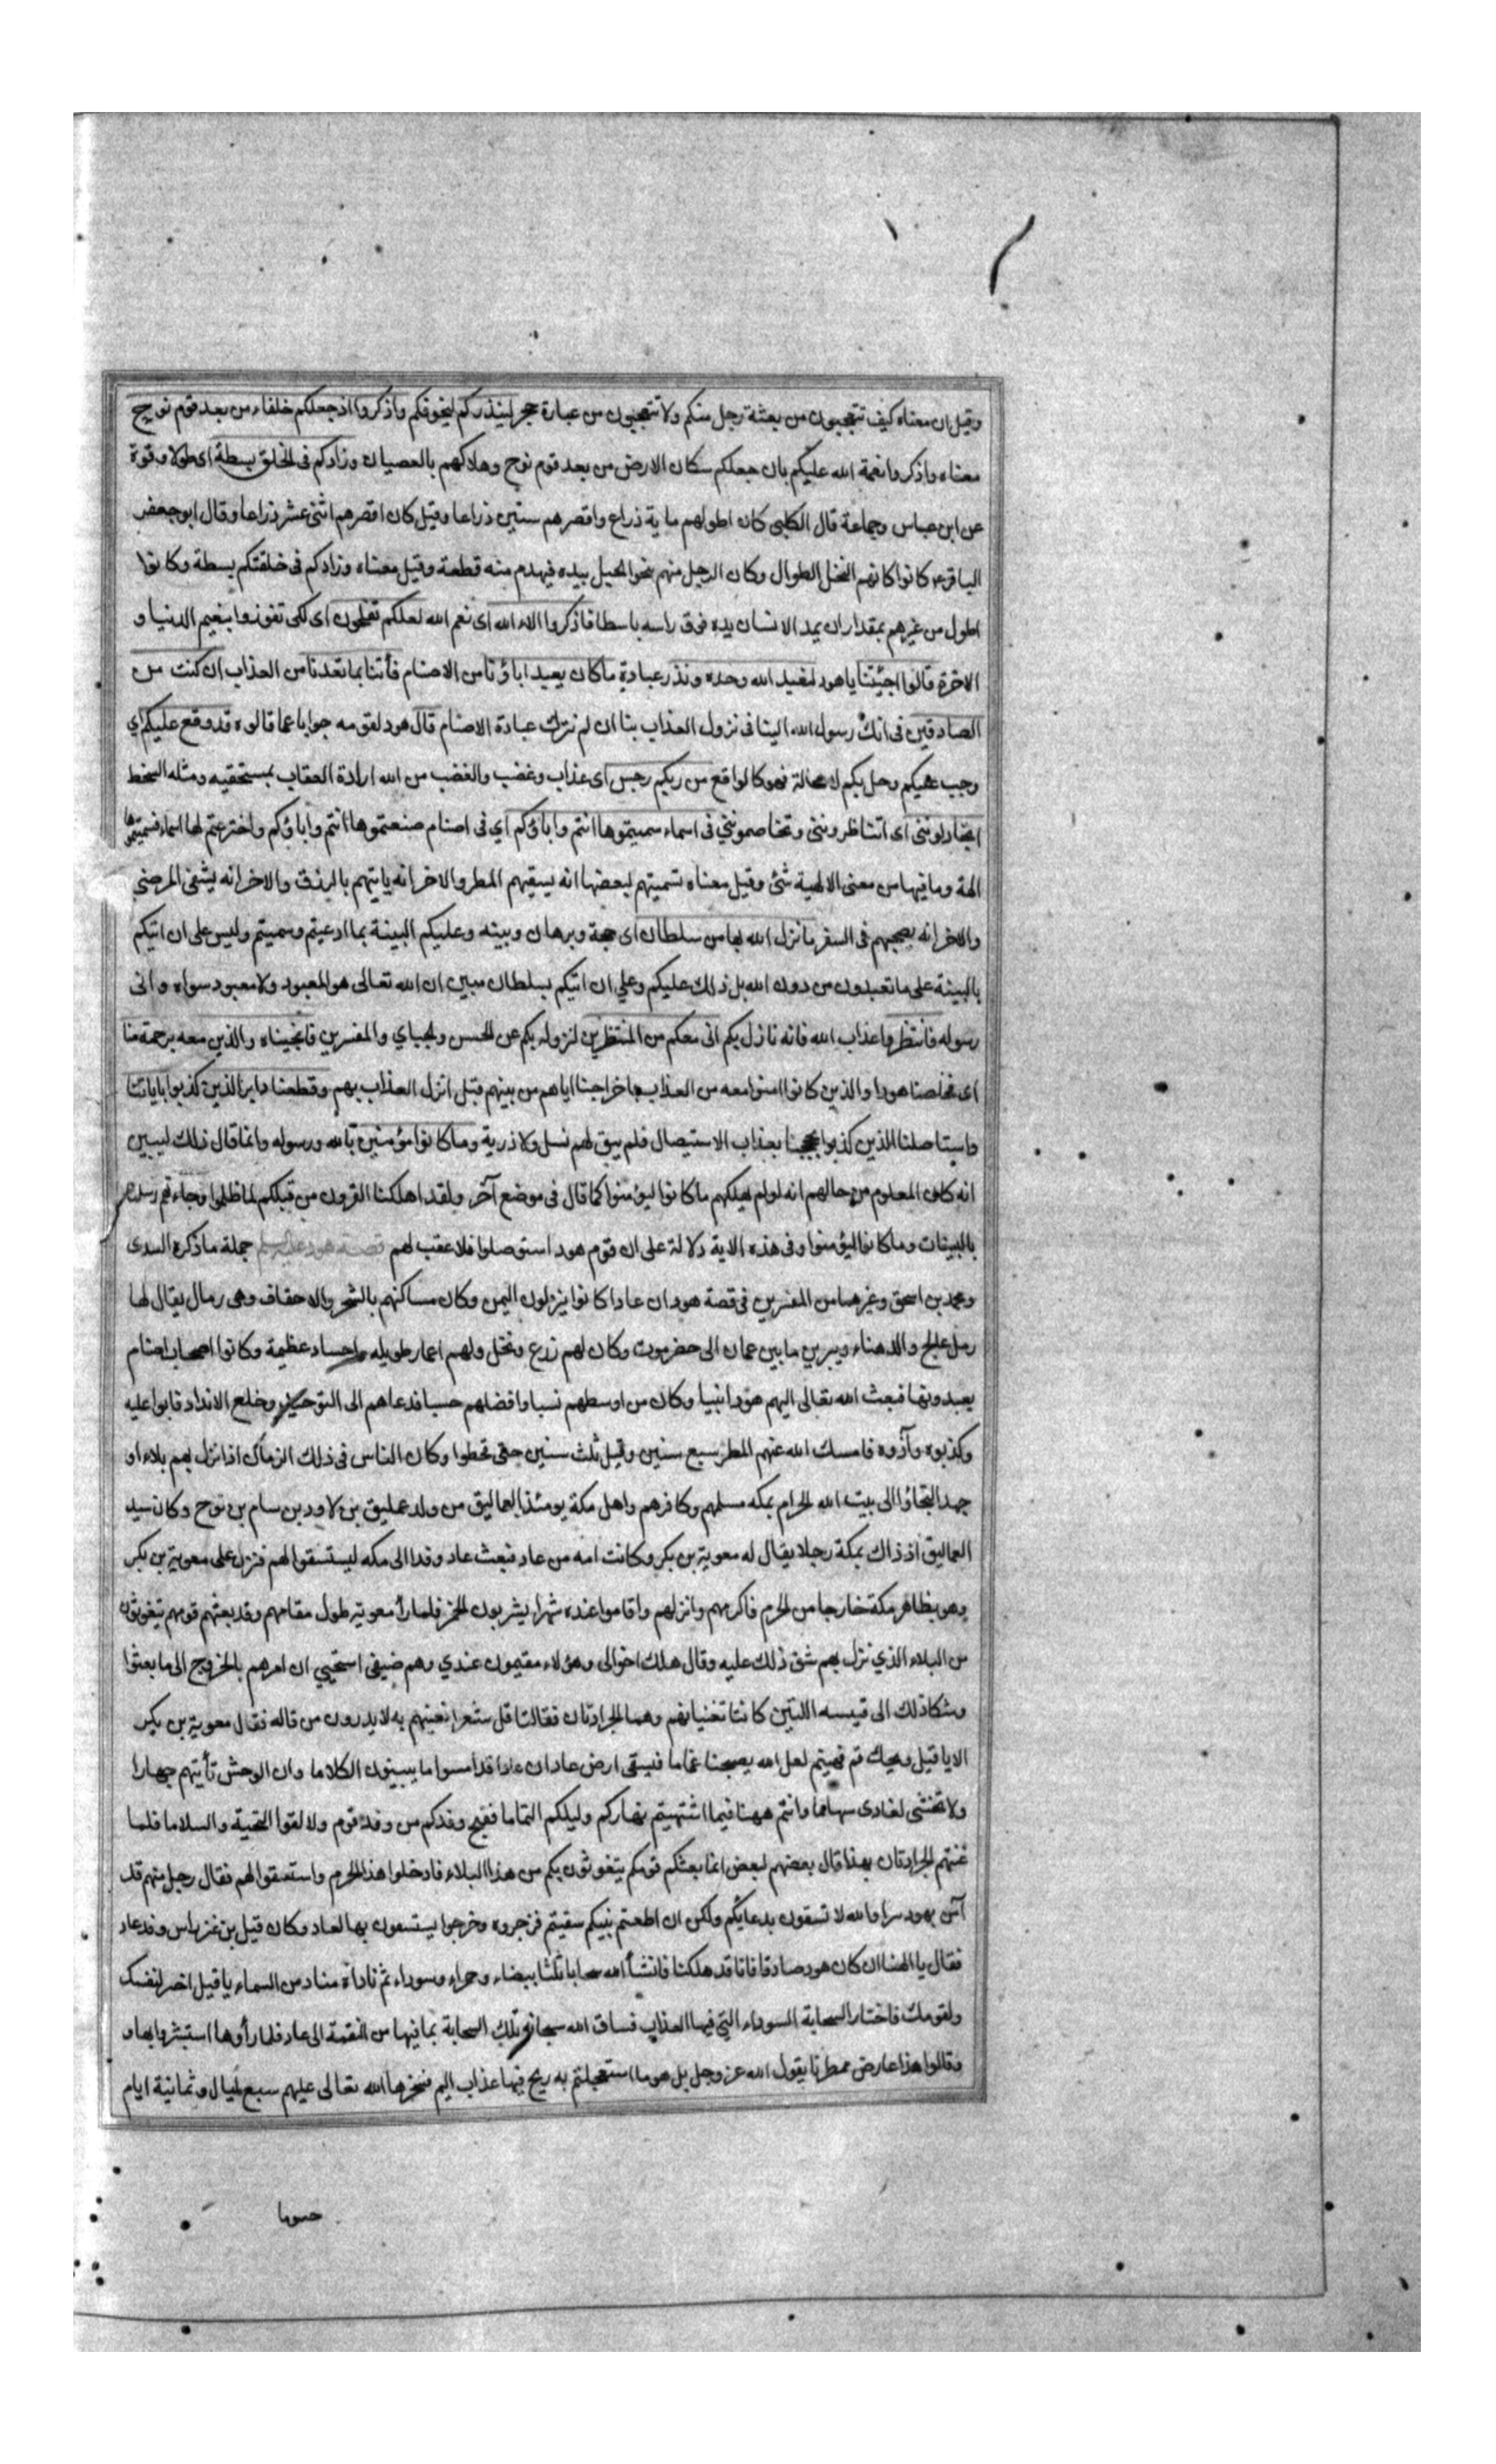 وقيل ان معناه كيف تتعجبون من بعثة رجل منكم ولا تتعجبون من عبارة حجر لينذركم ليخوفكم واذكروا اذ جعلكم خلفاء من بعد قوم نوح
معناه واذكروا نعمة الله عليكم بان جعلكم سكان الارض من بعد قوم نوح وهلاكهم بالعصيان وزادكم فى الخلق بسطة اى طولا وقوة
عن ابن عباس وجماعة قال الكلبى كان اطولهم ماية ذراع واقصرهم ستين ذراعا وقيل كان اقصرهم اثنى عشر ذراعا وقال ابو جعفر
الباقر ع كانوا كانهم النخل الطوال وكان الرجل منهم ينحو الجبل بيده فيهدم منه قطعة وقيل معناه وزادكم فى خلقتكم بسطة وكانوا
اطول من غيرهم بمقدار ان يمد الانسان يده فوق راسه باسطا فاذكروا الاء الله اى نعم الله لعلكم تفلحون اى لكى تفوزوا بنعيم الدنيا و
الاخرة قالوا اجئتنا ياهود لنعبد الله وحده ونذر عبادة ماكان يعبد اباؤنا من الاصنام فأتنا بما تعدنا من العذاب ان كنت من
الصادقين فى انك رسول الله الينا فى نزول العذاب بنا ان لم نترك عبادة الاصنام قال هود لقومه جوابا عما قالوه قد وقع عليكم اي
وجب عليكم وحل بكم لا محالة فهو كالواقع من ربكم رجس اى عذاب وغضب والغضب من الله ارادة العقاب بمستحقيه ومثله السخط
اتجادلوننى اى اتناظروننى وتخاصموننى فى اسماء سميتموها انتم واباؤكم اي فى اصنام صنعتموها انتم واباؤكم واخترعتم لها اسماء فسميتموها
الهة وما فيها من معنى الالهية شئ وقيل معناه تسميتهم لبعضها انه يسقيهم المطر والاخر انه ياتيهم بالرزق والاخر انه يشفى المرضى
والاخر انه يصحبهم فى السفر ما نزل الله بها من سلطان اى حجة وبرهان وبينه وعليكم البينة بما ادعيتم وسميتم وليس على ان اتيكم
بالبينة على ما تعبدون من دون الله بل ذلك عليكم وعلي ان اتيكم بسلطان مبين ان الله تعالى هو المعبود ولا معبود سواه وانى
رسوله فانتظروا عذاب الله فانه نازل بكم انى معكم من المنتظرين لنزوله بكم عن الحسن والجباي والمفسرين فانجيناه والذين معه برحمة منا
اى فخلصنا هودا والذين كانوا امنوا معه من العذاب باخراجنا اياهم من بينهم قبل انزل العذاب بهم وقطعنا دابر الذين كذبوا باياتنا
واستاصلنا الذين كذبوا بعذاب الاستيصال فلم يبق لهم نسل ولا ذرية وما كانوا مؤمنين بالله ورسوله وانما قال ذلك ليبين
انه كان المعلوم من حالهم انه لو لم يهلكهم ما كانوا ليؤمنوا كما قال فى موضع آخر ولقد اهلكنا القرون من قبلكم لما ظلموا وجاءتهم رسلهم
بالبينات وما كانوا ليؤمنوا وفى هذه الاية دلالة على ان قوم هود استوصلوا فلا عقب لهم قصة هود عليه السلم جملة ما ذكره السدى
ومحمد بن اسحق وغيرهما من المفسرين فى قصة هود ان عادا كانوا ينزلون اليمن وكان مساكنهم بالشحر والاحقاف وهى رمال يقال لها
رمل عالج والدهناء ويبرين ما بين عمان الى حضرموت وكان لهم زرع ونخل ولهم اعمار طويله واجساد عظيمة وكانوا اصحاب اصنام
يعبدونها فبعث الله تعالى اليهم هودا نبيا وكان من اوسطهم نسبا وافضلهم حسبا فدعاهم الى التوحيد وخلع الانداد فابوا عليه
وكذبوه وآذوه فامسك الله عنهم المطر سبع سنين وقيل ثلث سنين حتى قحطوا وكان الناس فى ذلك الزمان اذا نزل بهم بلاء او
جهد التجاؤا الى بيت الله الحرام بمكه مسلمهم وكافرهم واهل مكة يومئذ العماليق من ولد عمليق بن لاود بن سام بن نوح وكان سيد
العماليق اذ ذاك بمكة رجلا يقال له معوية بن بكر وكانت امه من عاد فبعث عاد وفدا الى مكه ليستسقوا لهم فنزل على معوية بن بكر
وهو بظاهر مكة خارجا من الحرم فاكرمهم وانزلهم واقاموا عنده شهرا يشربون الخمر فلما رأ معوية طول مقامهم وقد بعثهم قومهم يتغوثون
من البلاء الذي نزل بهم شق ذلك عليه وقال هلك اخوالى وهؤلاء مقيمون عندي وهم ضيفى استحيي ان امرهم بالخروج الى ما بعثوا
وشكا ذلك الى قينيه اللتين كانتا تغنيانهم وهما الجرادتان فقالتا قل شعرا نغنيهم به لا يدرون من قاله فقال معوية بن بكر
الا يا قيل ويحك قم فهينم لعل الله يصبحنا غماما فيسقى ارض عاد ان عادا قد امسوا ما يبينون الكلاما وان الوحش تأتيهم جهارا
ولا تخشى لعادى سهاما وانتم ههنا فيما اشتهيتم نهاركم وليلكم التماما فقبح وفدكم من وفد قوم ولا لقوا التحية والسلاما فلما
غنتهم الجرادتان بهذا قال بعضهم لبعض انما بعثكم قومكم يتغوثون بكم من هذا البلاء فادخلوا هذا الحرم واستسقوا لهم فقال رجل منهم قد
آمن بهود سرا والله لا تسقون بدعايكم ولكن ان اطعتم نبيكم سقيتم فزجروه وخرجوا يستسقون بها لعاد وكان قيل بن غز راس وفد عاد
فقال يا الهنا ان كان هود صادقا فانا قد هلكنا فانشأ الله سحابا ثلثا بيضاء وحمراء وسوداء ثم ناداه مناد من السماء يا قيل اختر لنفسك
ولقومك فاختار السحابة السوداء التي فيها العذاب فساق الله سبحانه تلك السحابة بما فيها من النقمة الى عاد فلما رأوها استبشروا بها و
وقالوا هذا عارض ممطرنا يقول الله عز وجل بل هو ما استعجلتم به ريح فيها عذاب اليم فسخرها الله تعالى عليهم سبع ليال وثمانية ايام
حسوما